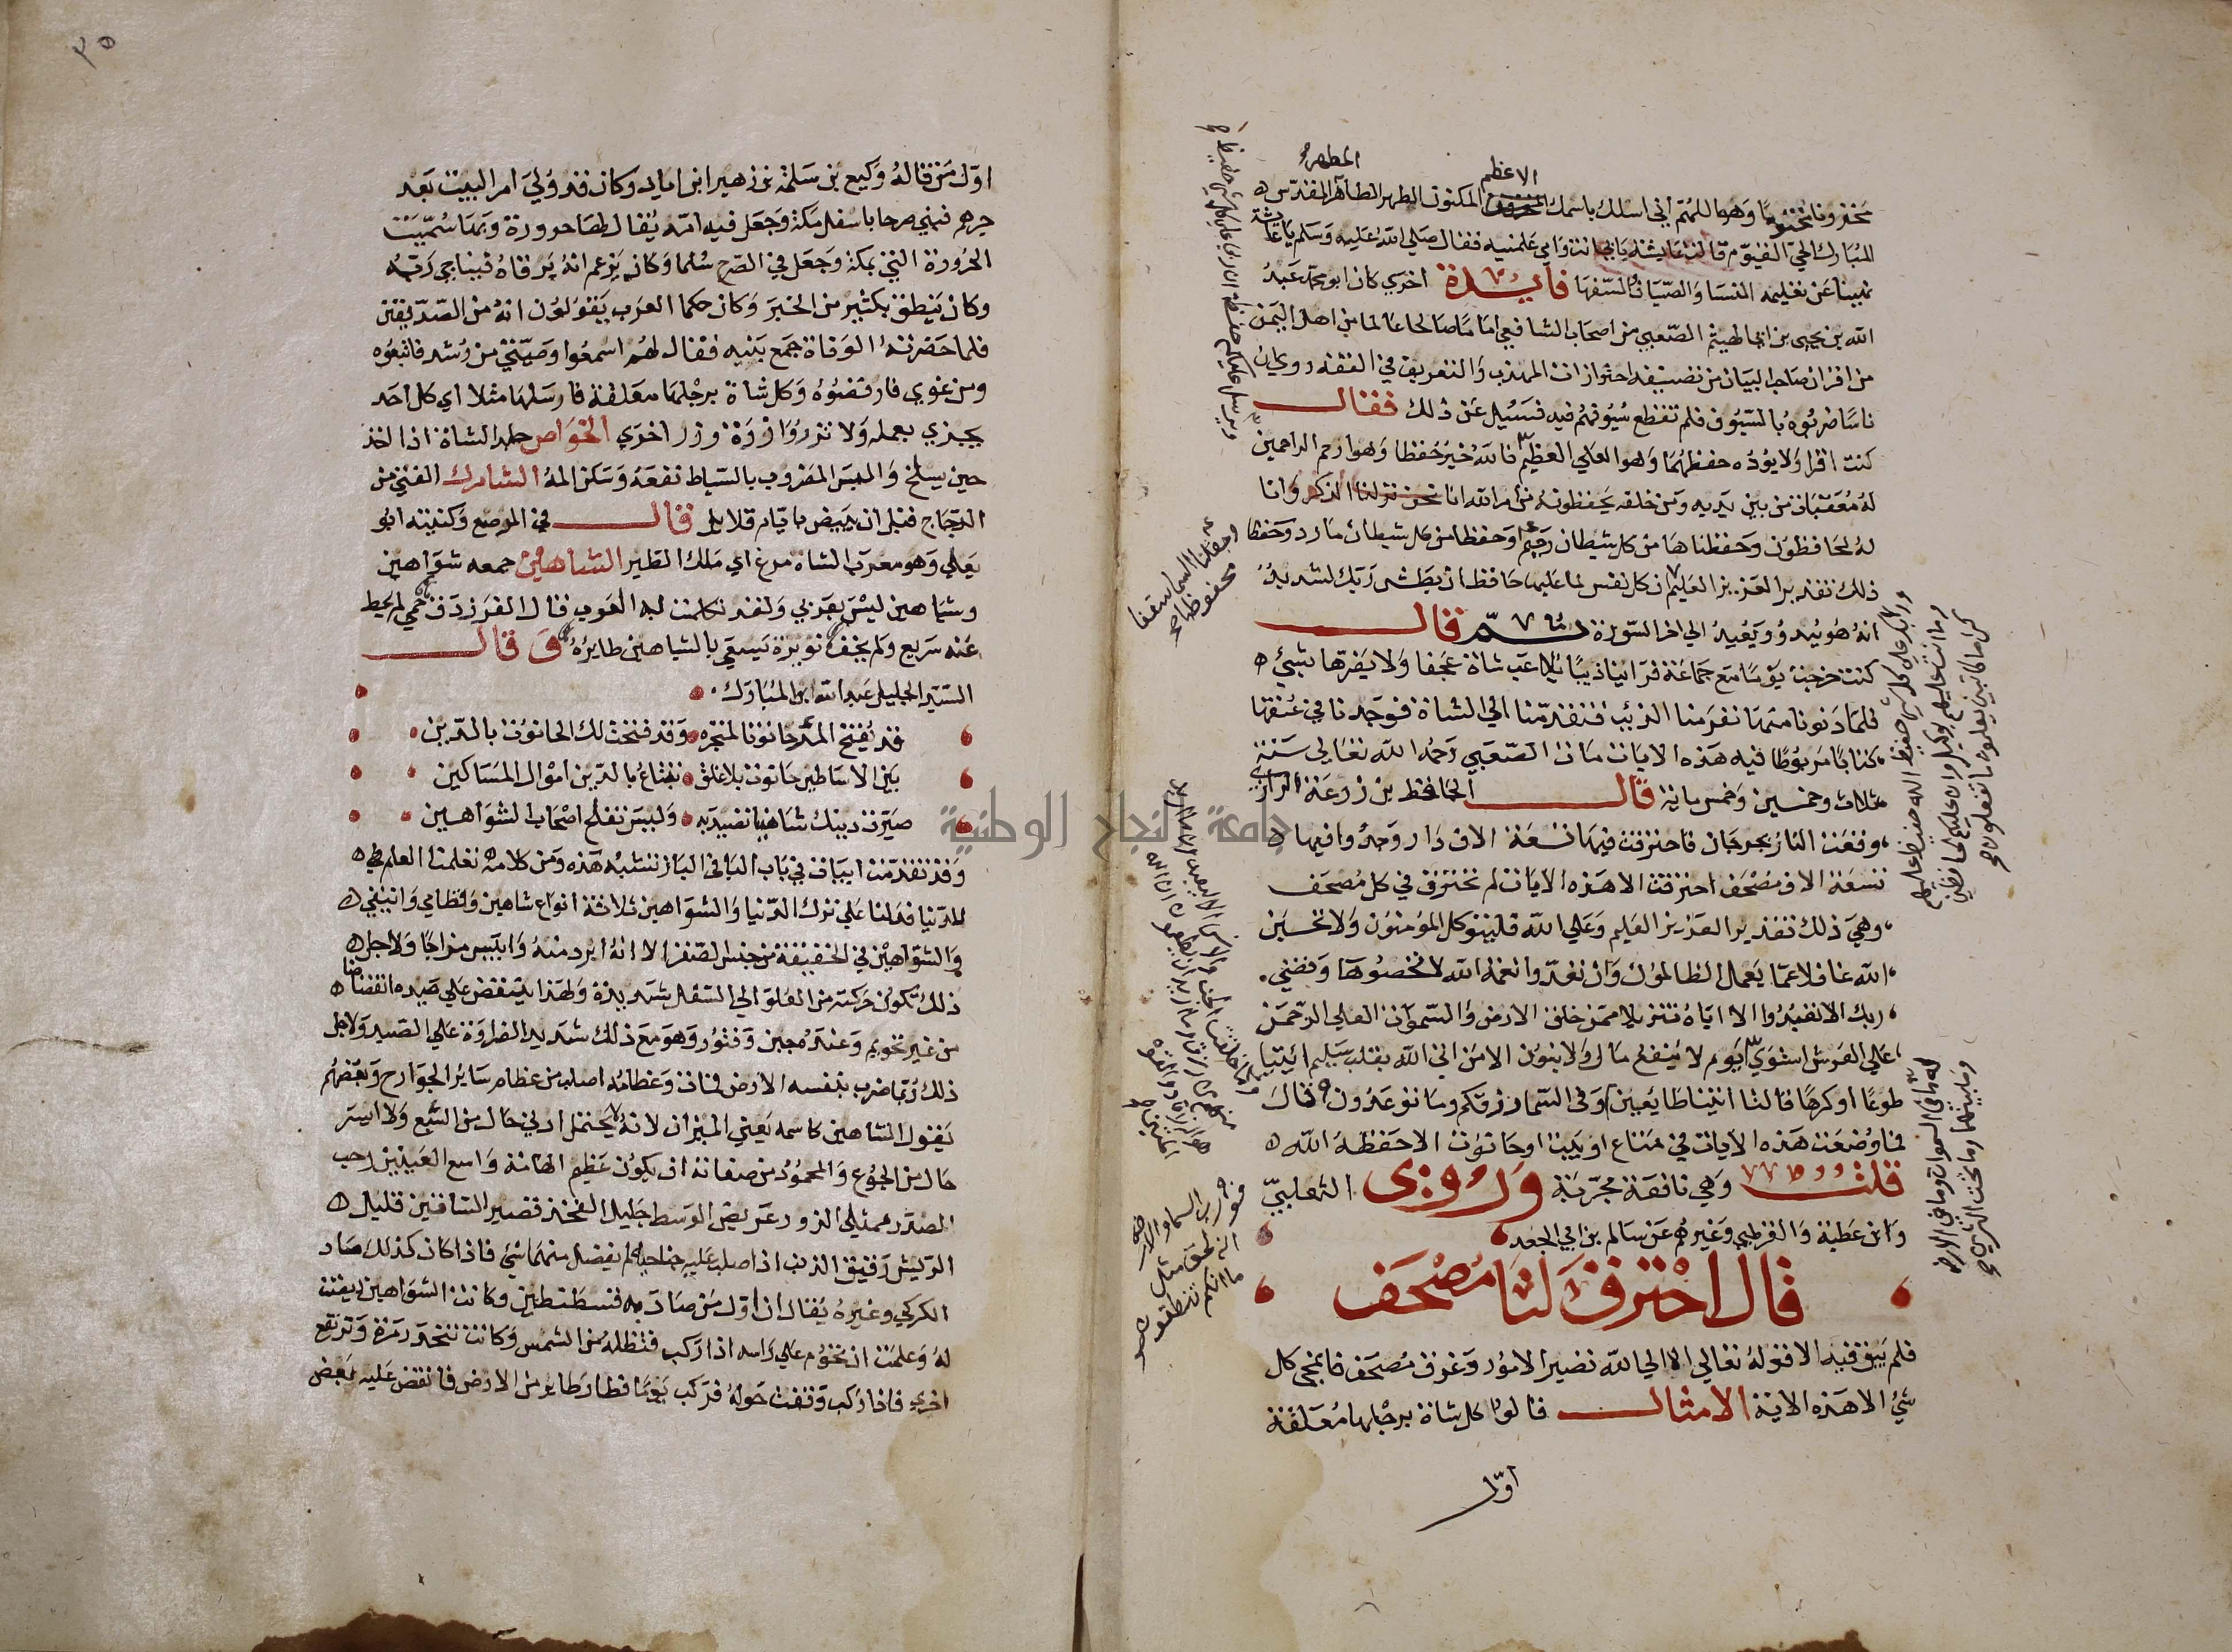 الاعظم
المطهر
مخزونا مختوما وهو اللهم اني اسلك باسمك المكنون الطهر الطاهر المقدس
المبارك الحي القيوم قالت عايشة بابي انت وامي علمنيه فقال صلي الله عليه وسلم يا عايشة
نهينا عن تعليمه النسا والصبيان والسفها فايدة اخري كان ابو محمد عبد
الله بن يحيي بن ابي الهيثم الصعبي من اصحاب الشافعي اماما صالحا عالما من اهل اليمن
من اقران صاحب البيان من تصنيفه احترازات المهذب والتعريف في الفقه روي ان
ناسا ضربوه بالسيوف فلم تقطع سيوفهم فيه فسيل عن ذلك فقال
كنت اقرا ولا يوده حفظهما وهو العلي العظيم فالله خير حفظا وهو ارحم الراحمين
له معقبات من بين يديه ومن خلفه يحفظونه من امر الله انا نحن نزلنا الذكر وانا
له لحافظون وحفظناها من كل شيطان رجيم وحفظا من كل شيطان مارد وحفظا
ذلك تقدير العزيز العليم ان كل نفس لما عليها حافظ ان بطش ربك لشديد
انه هو يبدو ويعيد الي اخر السورة ثم قال
كنت خرجت يوما مع جماعة فراينا ذيبا يلاعب شاة عجفا ولا يضرها بشيء
فلما دنونا منهما نفر منا الذئب فتقدمنا الي الشاة فوجدنا في عنقها
كتابا مربوطا فيه هذه الايات مات الصعبي رحمه الله تعالي سنة
ثلاث وخمسين وخمس ماية قال الحافظ بن زرعة الرازي
وقعت النار بجرجان فاحترقت فيها تسعة الاف دار وجدوا فيها
تسعة الاف مصحف احترقت الا هذه الايات لم تحترق في كل مصحف
وهي ذلك تقدير العزيز العليم وعلي الله فليتوكل المومنون ولا تحسبن
الله غافلا عما يعمل الظالمون وان تعدوا نعمة الله لا تحصوها وقضي
ربك الا تعبدوا الا اياه تنزيلا ممن خلق الارض والسموات العلي الرحمن
علي العرش استوي يوم لا ينفع مال ولا بنون الا من اتي الله بقلب سليم ائتيا
طوعا او كرها قالتا اتينا طايعين وفي السما رزقكم وما توعدون قال
فما وضعت هذه الايات في متاع او بيت او حانوت الا حفظه الله
قلت وهي نافعة مجربة وروي الثعلبي
وابن عطية والقرطبي وغيرهم عن سالم بن ابي الجعد
قال احترق لنا مصحف
فلم يبق فيه الا قوله تعالي الا الي الله تصير الامور وغرق مصحف فانمحي كل
شيء الا هذه الاية الامثال قالوا كل شاة برجلها معلقة
اول
وجعلنا السما سقفا
محفوظا
وربك علي كل شي حفيظ الله حفيظ عليهم
وما انت عليهم بوكيل وان عليكم لحافظين
كراما كاتبين يعلمون ما تفعلون
له ما في السموات وما في الارض
وما بينهما وما تحت الثري
وما خلقت الجن والانس الا ليعبدون
فورب السما والارض
انه لحق مثل
ما انكم تنطقون
٣٥
اول من قاله وكيع بن سلمة بن زهير ابن اياد وكان قد ولي امر البيت بعد
جرهم فبني صرحا باسفل مكة وجعل فيه امة يقال لها حرورة وبها سميت
الحرورة التي بمكة وجعل في الصرح سلما وكان يزعم انه يرقاه فيناجي ربه
وكان ينطق بكثير من الخير وكان حكما العرب يقولون انه من الصديقين
فلما حضرته الوفاة جمع بنيه فقال لهم اسمعوا وصيتي من رشد فاتبعوه
ومن غوي فارفضوه وكل شاة برجلها معلقة فارسلها مثلا اي كل احد
يجزي بعمله ولا تزر وازرة وزر اخري الخواص جلد الشاة اذا اخذ
حين يسلخ والبس المضروب بالسياط نفعه وسكن المه الشامرك الفتي من
الدجاج قبل ان يبيض بايام قلايل قال في المرصع وكنيته ابو
يعلي وهو معرب الشاة مرغ اي ملك الطير الشاهين جمعه شواهين
وشياهين ليس بعربي ولقد تكلمت به العرب قال الفرزدق حمي لم يحط
عنه سريع ولم يخف نويرة يسعي بالشياهين طايره وقال
السيد الجليل عبد الله بن المبارك
قد يفتح المرء حانوتا لمتجره وقد فتحت لك الحانوت بالدين
بين الاساطير حانوت بلا غلق تبتاع بالدين اموال المساكين
صيرت دينك شاهينا تصيد به وليس تفلح اصحاب الشواهين
وقد تقدمت ابيات في باب البا في الباز تشبه هذه ومن كلامه تعلمنا العلم
للدنيا فدلنا علي ترك الدنيا والشواهين ثلاثة انواع شاهين وقطامي وانيقي
والشواهين في الحقيقة من جنس الصقر الا انه ابرد منه وايبس مزاجا ولاجل
ذلك تكون حركته من العلو الي السفل شديدة ولهذا ينقض علي صيده انقضاضا
من غير تحويم وعنده جبن وفتور وهو مع ذلك شديد الضراوة علي الصيد ولاجل
ذلك ربما ضرب بنفسه الارض فمات وعظامه اصلب من عظام ساير الجوارح وبعضهم
يقول الشاهين كاسمه يعني الميزان لانه لا يحتمل ادني حال من الشبع ولا ايسر
حال من الجوع والمحمود من صفاته ان يكون عظيم الهامة واسع العينين رحب
الصدر ممتلي الزور عريض الوسط جليل الفخذ قصير الساقين قليل
الريش رقيق الذنب اذا صلب عليه جناحيه لم يفضل منهما شي فاذا كان كذلك صاد
الكركي وغيره يقال ان اول من صاد به قسطنطين وكانت الشواهين ريضت
له وعلمت ان تحوم علي راسه اذا ركب فتظله من الشمس وكانت تنحدر مرة وترتفع
اخري فاذا ركب وقفت حوله فركب يوما فطار طاير من الارض فانقض عليه بعض
جامعة النجاح الوطنية